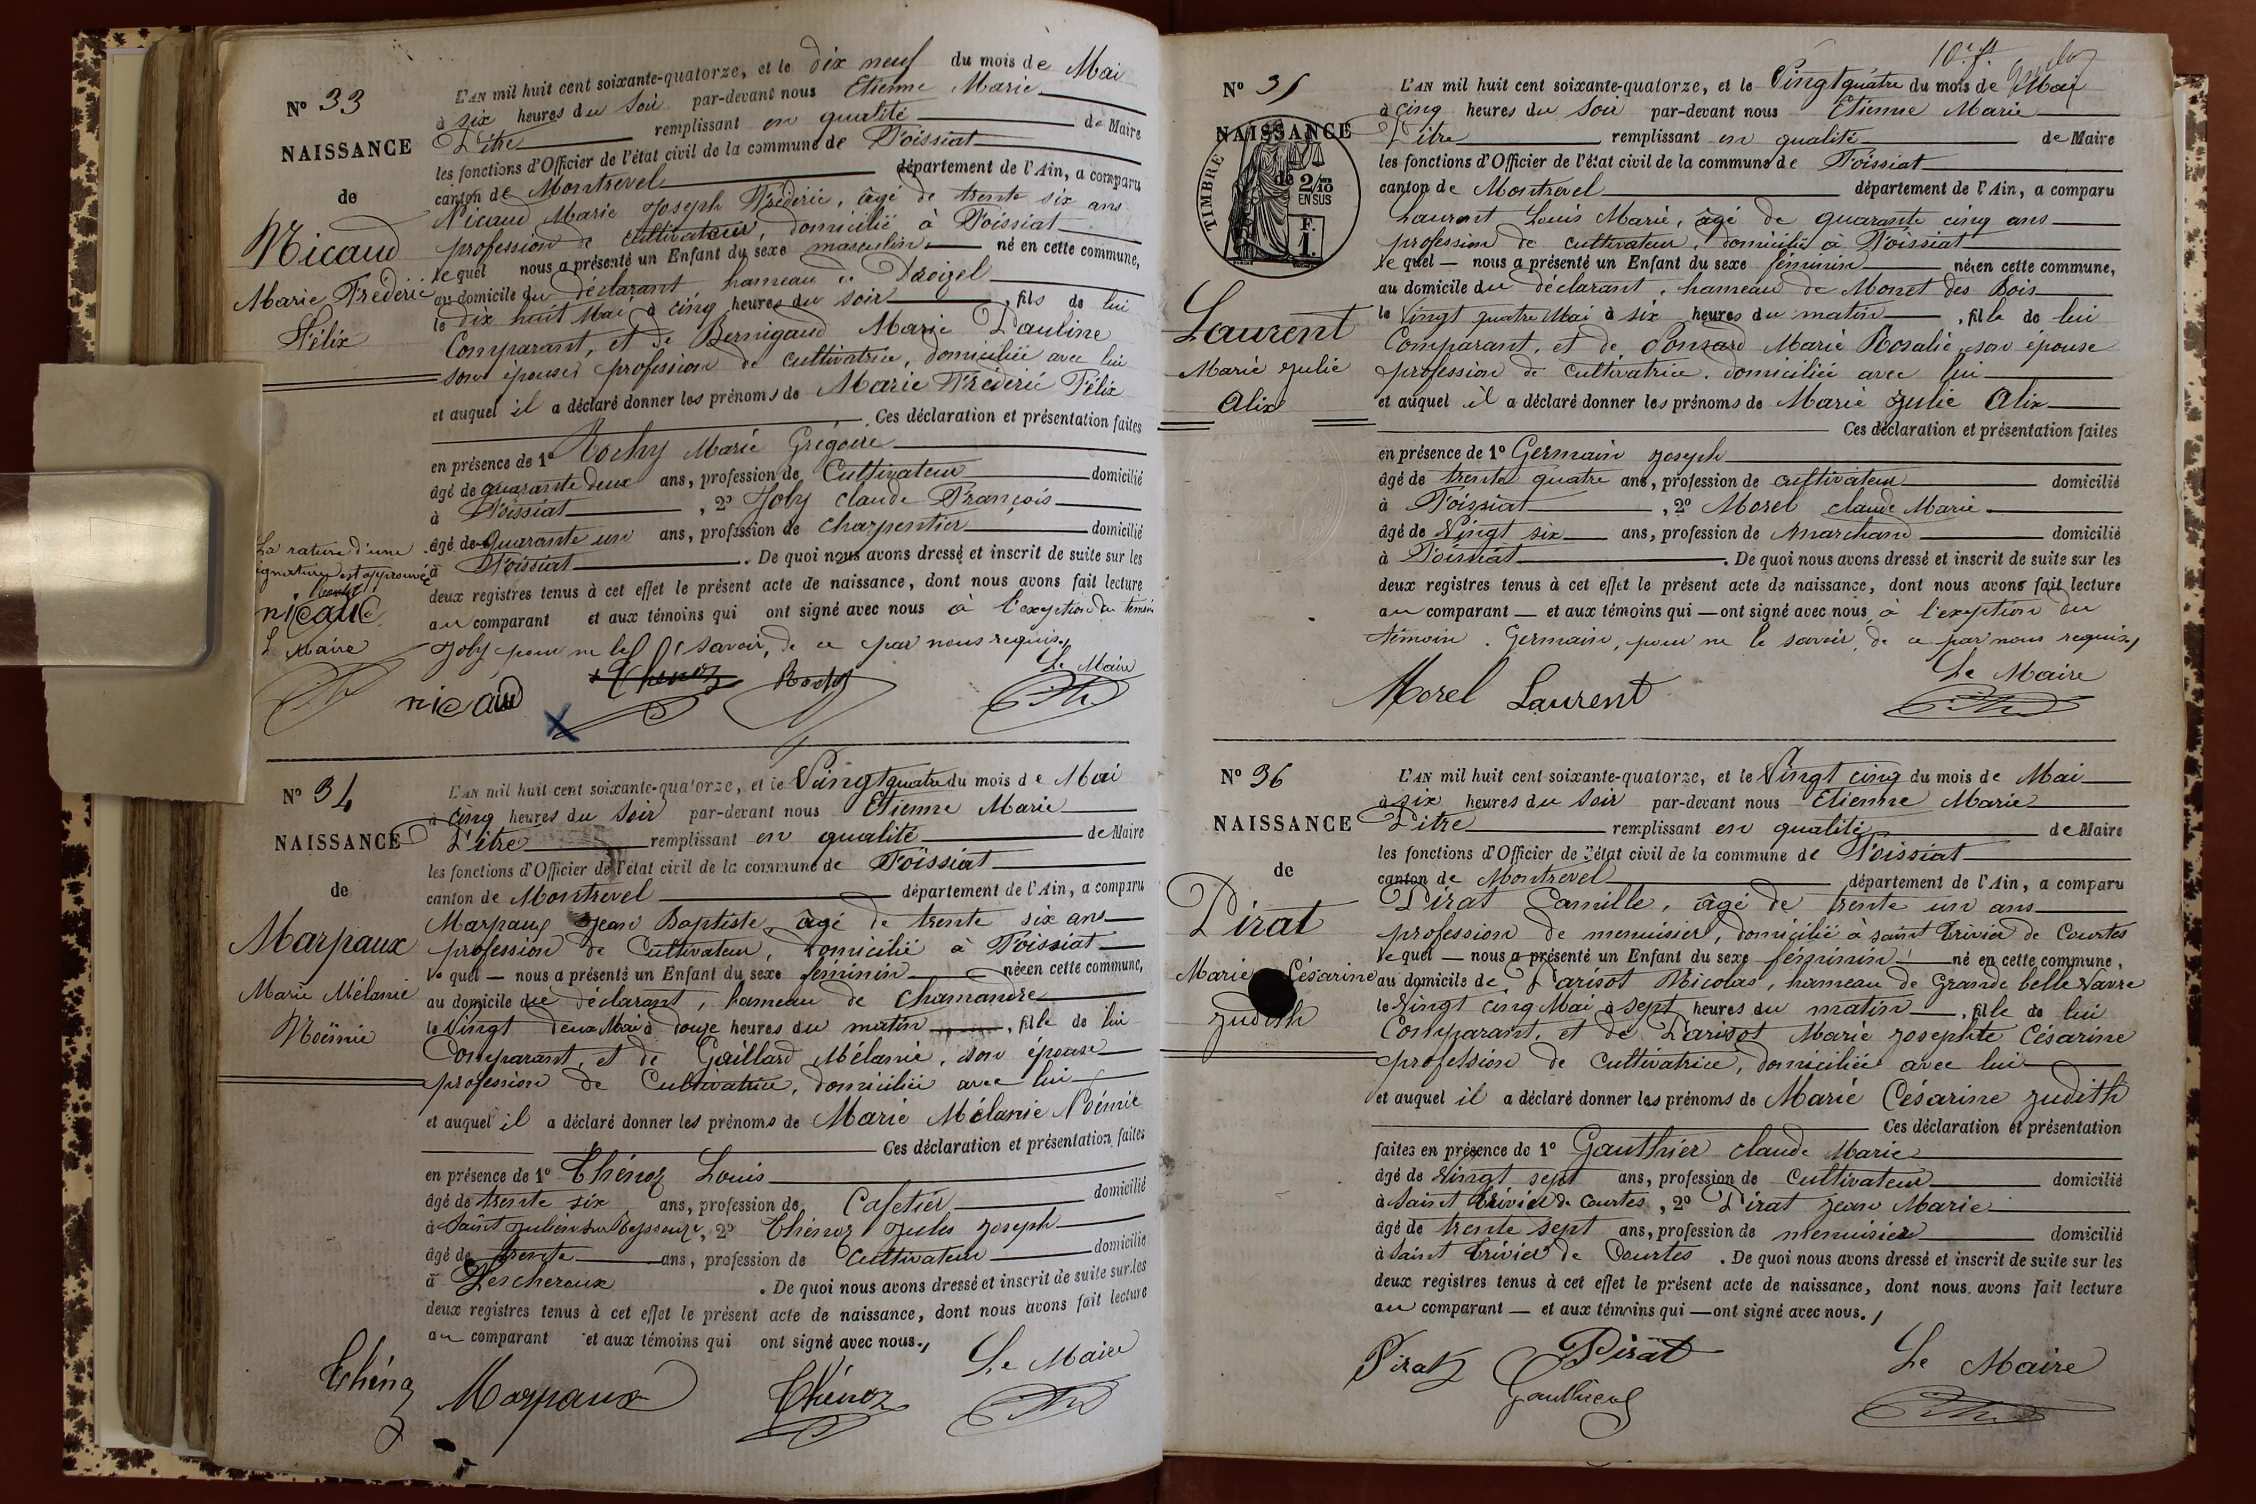 N° 33
NAISSANCE
de
Nicaud
Marie Frédéric
Félix
L'AN mil huit cent soixante-quatorze, et le dix neuf du mois de Mai
à six heures du Soir par-devant nous Etienne Marie
Pitre remplissant en qualité de Maire
les fonctions d'Officier de l'état civil de la commune de Foissiat
canton de Montrevel département de l'Ain, a comparu
Nicaud Marie Joseph Frédéric, âgé de trente six ans
profession de cultivateur, domicilié à Foissiat
le quel nous a présenté un Enfant du sexe masculin né en cette commune,
au domicile du déclarant hameau de
le dix huit Mai à cinq heures du soir, fils de lui
Comparant, et de Bernigaud Marie Pauline
son épouse, profession de cultivatrice, domiciliée avec lui
et auquel il a déclaré donner les prénoms de Marie Frédéric Félix
Ces déclaration et présentation faites
en présence de 1° Rochy Marie Grégoire
âgé de quarante deux ans, profession de Cultivateur domicilié
à Foissiat, 2° Joly Claude François
âgé de Quarante un ans, profession de charpentier domicilié
à Foissiat. De quoi nous avons dressé et inscrit de suite sur les
deux registres tenus à cet effet le présent acte de naissance, dont nous avons fait lecture
au comparant et aux témoins qui ont signé avec nous à l'exeption du témoin
Joly pour ne le savoir, de ce par nous requis,
La rature d'une
signature est approuvée
nicaud
L Maire
nicaud Thenoz Rochy Le Maire
N° 34
NAISSANCE
de
Marpaux
Marie Mélanie
Noëmie
L'AN mil huit cent soixante-quatorze, et le Vingt quatre du mois de Mai
à cinq heures du Soir par-devant nous Etienne Marie
Pitre remplissant en qualité de Maire
les fonctions d'Officier de l'état civil de la commune de Foissiat
canton de Montrevel département de l'Ain, a comparu
Marpaux Jean Baptiste, âgé de trente six ans
profession de Cultivateur, domicilié à Foissiat
le quel — nous a présenté un Enfant du sexe féminin née en cette commune,
au domicile du déclarant, hameau de Chamandre
le Vingt deux Mai à douze heures du matin, fille de lui
Comparant, et de Gaillard Mélanie, son épouse
profession de Cultivatrice, domiciliée avec lui
et auquel il a déclaré donner les prénoms de Marie Mélanie Noémie
Ces déclaration et présentation faites
en présence de 1° Thénoz Louis
âgé de trente six ans, profession de Cafetier domicilié
à Saint Julien sur Reyssouze, 2° Thénoz Jules Joseph
âgé de trente ans, profession de Cultivateur domicilié
à Lescheroux. De quoi nous avons dressé et inscrit de suite sur les
deux registres tenus à cet effet le présent acte de naissance, dont nous avons fait lecture
au comparant et aux témoins qui ont signé avec nous.,
Thénoz Marpaux Thénoz Le Maire
10e ft.
N° 35
NAISSANCE
de
TIMBRE
2/10 EN SUS
F. 1.
Laurent
Marie Julie
Alix
L'AN mil huit cent soixante-quatorze, et le Vingt quatre du mois de Mai
à cinq heures du Soir par-devant nous Etienne Marie
Pitre remplissant en qualité de Maire
les fonctions d'Officier de l'état civil de la commune de Foissiat
canton de Montrevel département de l'Ain, a comparu
Laurent Louis Marie, âgé de quarante cinq ans
profession de cultivateur, domicilié à Foissiat
le quel — nous a présenté un Enfant du sexe féminin née en cette commune,
au domicile du déclarant, hameau de Monet des Bois
le Vingt quatre Mai à six heures du matin, fille de lui
Comparant, et de Ponsard Marie Rosalie, son épouse
profession de Cultivatrice, domiciliée avec lui
et auquel il a déclaré donner les prénoms de Marie Julie Alix
Ces déclaration et présentation faites
en présence de 1° Germain Joseph
âgé de trente quatre ans, profession de cultivateur domicilié
à Foissiat, 2° Morel Claude Marie
âgé de Vingt six ans, profession de marchand domicilié
à Foissiat. De quoi nous avons dressé et inscrit de suite sur les
deux registres tenus à cet effet le présent acte de naissance, dont nous avons fait lecture
au comparant — et aux témoins qui — ont signé avec nous, à l'exeption du
témoin. Germain, pour ne le savoir, de ce par nous requis,
Le Maire
Morel Laurent
N° 36
NAISSANCE
de
Pirat
Marie Césarine
Judith
L'AN mil huit cent soixante-quatorze, et le Vingt cinq du mois de Mai
à six heures du Soir par-devant nous Etienne Marie
Pitre remplissant en qualité de Maire
les fonctions d'Officier de l'état civil de la commune de Foissiat
canton de Montrevel département de l'Ain, a comparu
Pirat Camille, âgé de trente un ans
profession de menuisier, domicilié à Saint Trivier de Courtes
le quel — nous a présenté un Enfant du sexe féminin né en cette commune,
au domicile de Parisot Nicolas, hameau de Grande belle Vavre
le Vingt cinq Mai à sept heures du matin, fille de lui
Comparant, et de Parisot Marie Josephte Césarine
profession de Cultivatrice, domiciliée avec lui
et auquel il a déclaré donner les prénoms de Marie Césarine Judith
Ces déclaration et présentation
faites en présence de 1° Gauthier Claude Marie
âgé de Vingt sept ans, profession de Cultivateur domicilié
à Saint Trivier de Courtes, 2° Pirat Jean Marie
âgé de trente sept ans, profession de menuisier domicilié
à Saint Trivier de Courtes. De quoi nous avons dressé et inscrit de suite sur les
deux registres tenus à cet effet le présent acte de naissance, dont nous avons fait lecture
au comparant — et aux témoins qui — ont signé avec nous.,
Pirat Pirat Le Maire
Gauthier